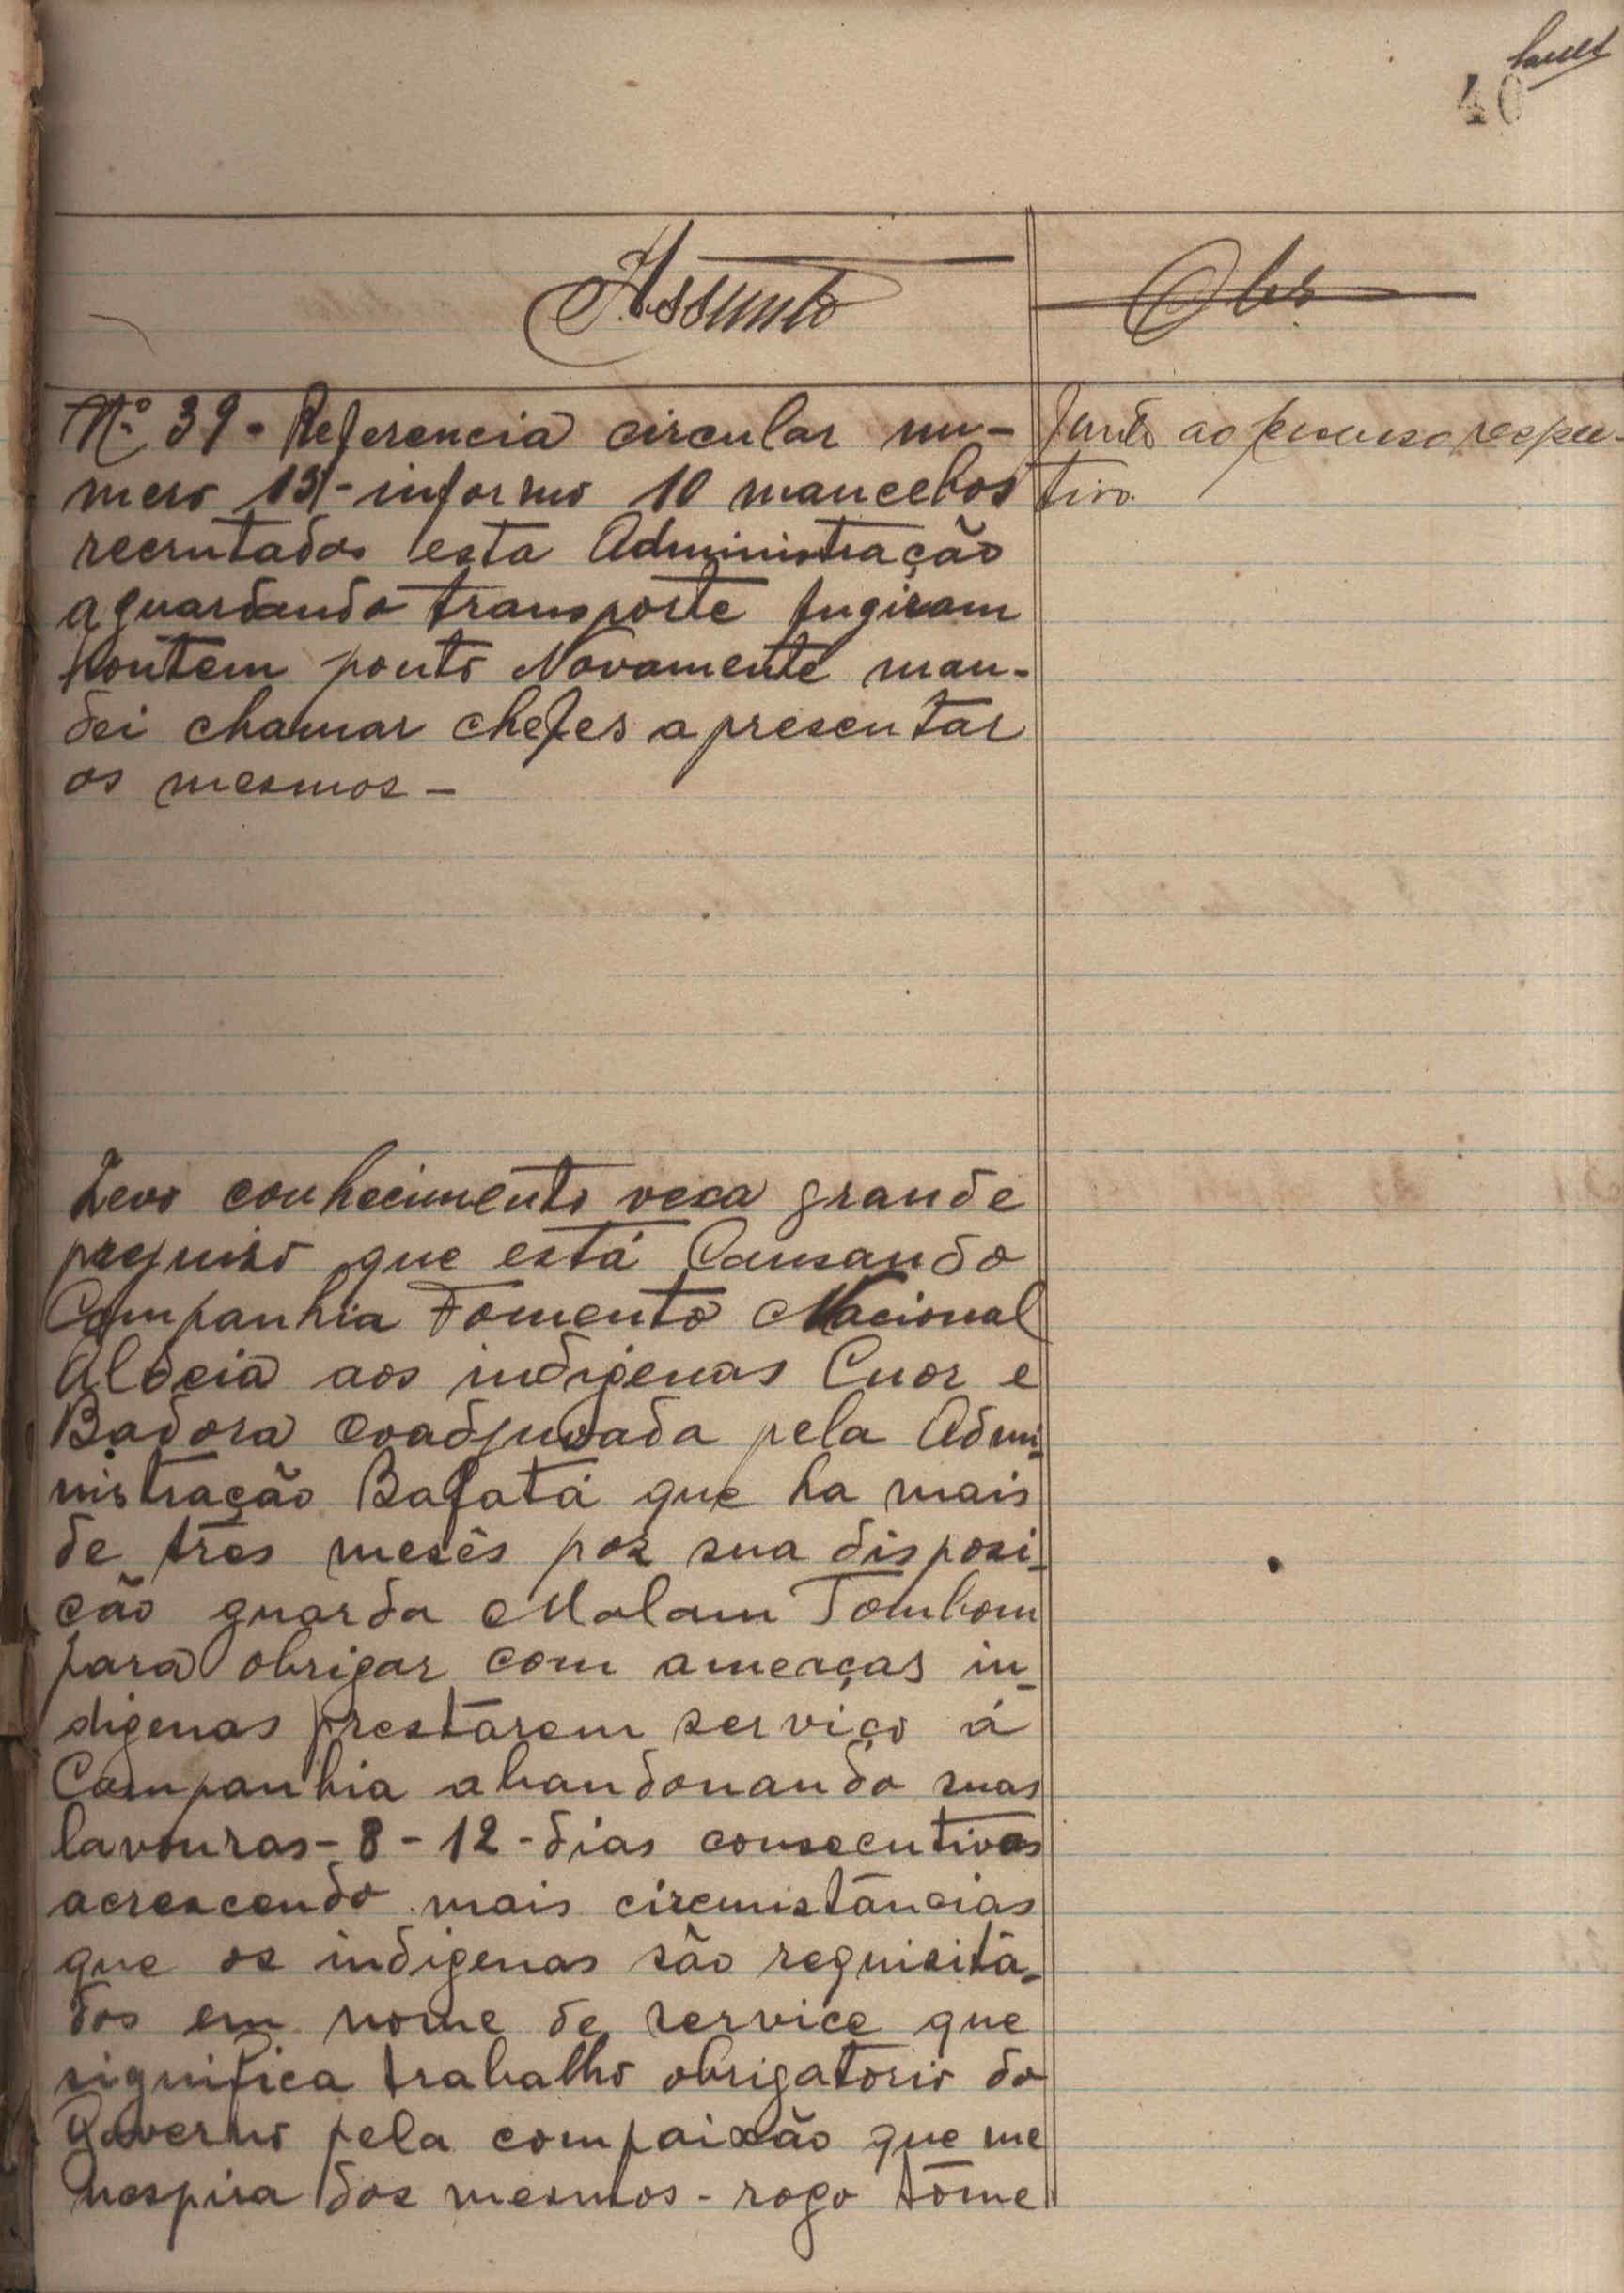 40
Assunto
Obs
Nº 39 - Referencia circular nu-
mero 13 - informo 10 mancebos
recrutados esta Administração
aguardando transporte fugiram
hontem ponto Novamente man-
dei chamar chefes apresentar
os mesmos -
Junto ao processo respec-
tivo.
Levo conhecimento vexa grande
prejuizo que está Causando
Companhia Fomento Nacional
Aldeia aos indigenas Cuor e
Badora coadjuvada pela Admi-
nistração Bafatá que ha mais
de três mesês poz sua disposi-
cão guarda Malam Tombom
para obrigar com ameaças in-
digenas prestarem serviço á
Companhia abandonando suas
lavouras - 8 - 12 - dias consecutivos
acrescendo mais circunstancias
que os indigenas são requisita-
dos em nome de service que
significa trabalho obrigatorio do
Governo pela compaixão que me
inspira dos mesmos - rogo tome